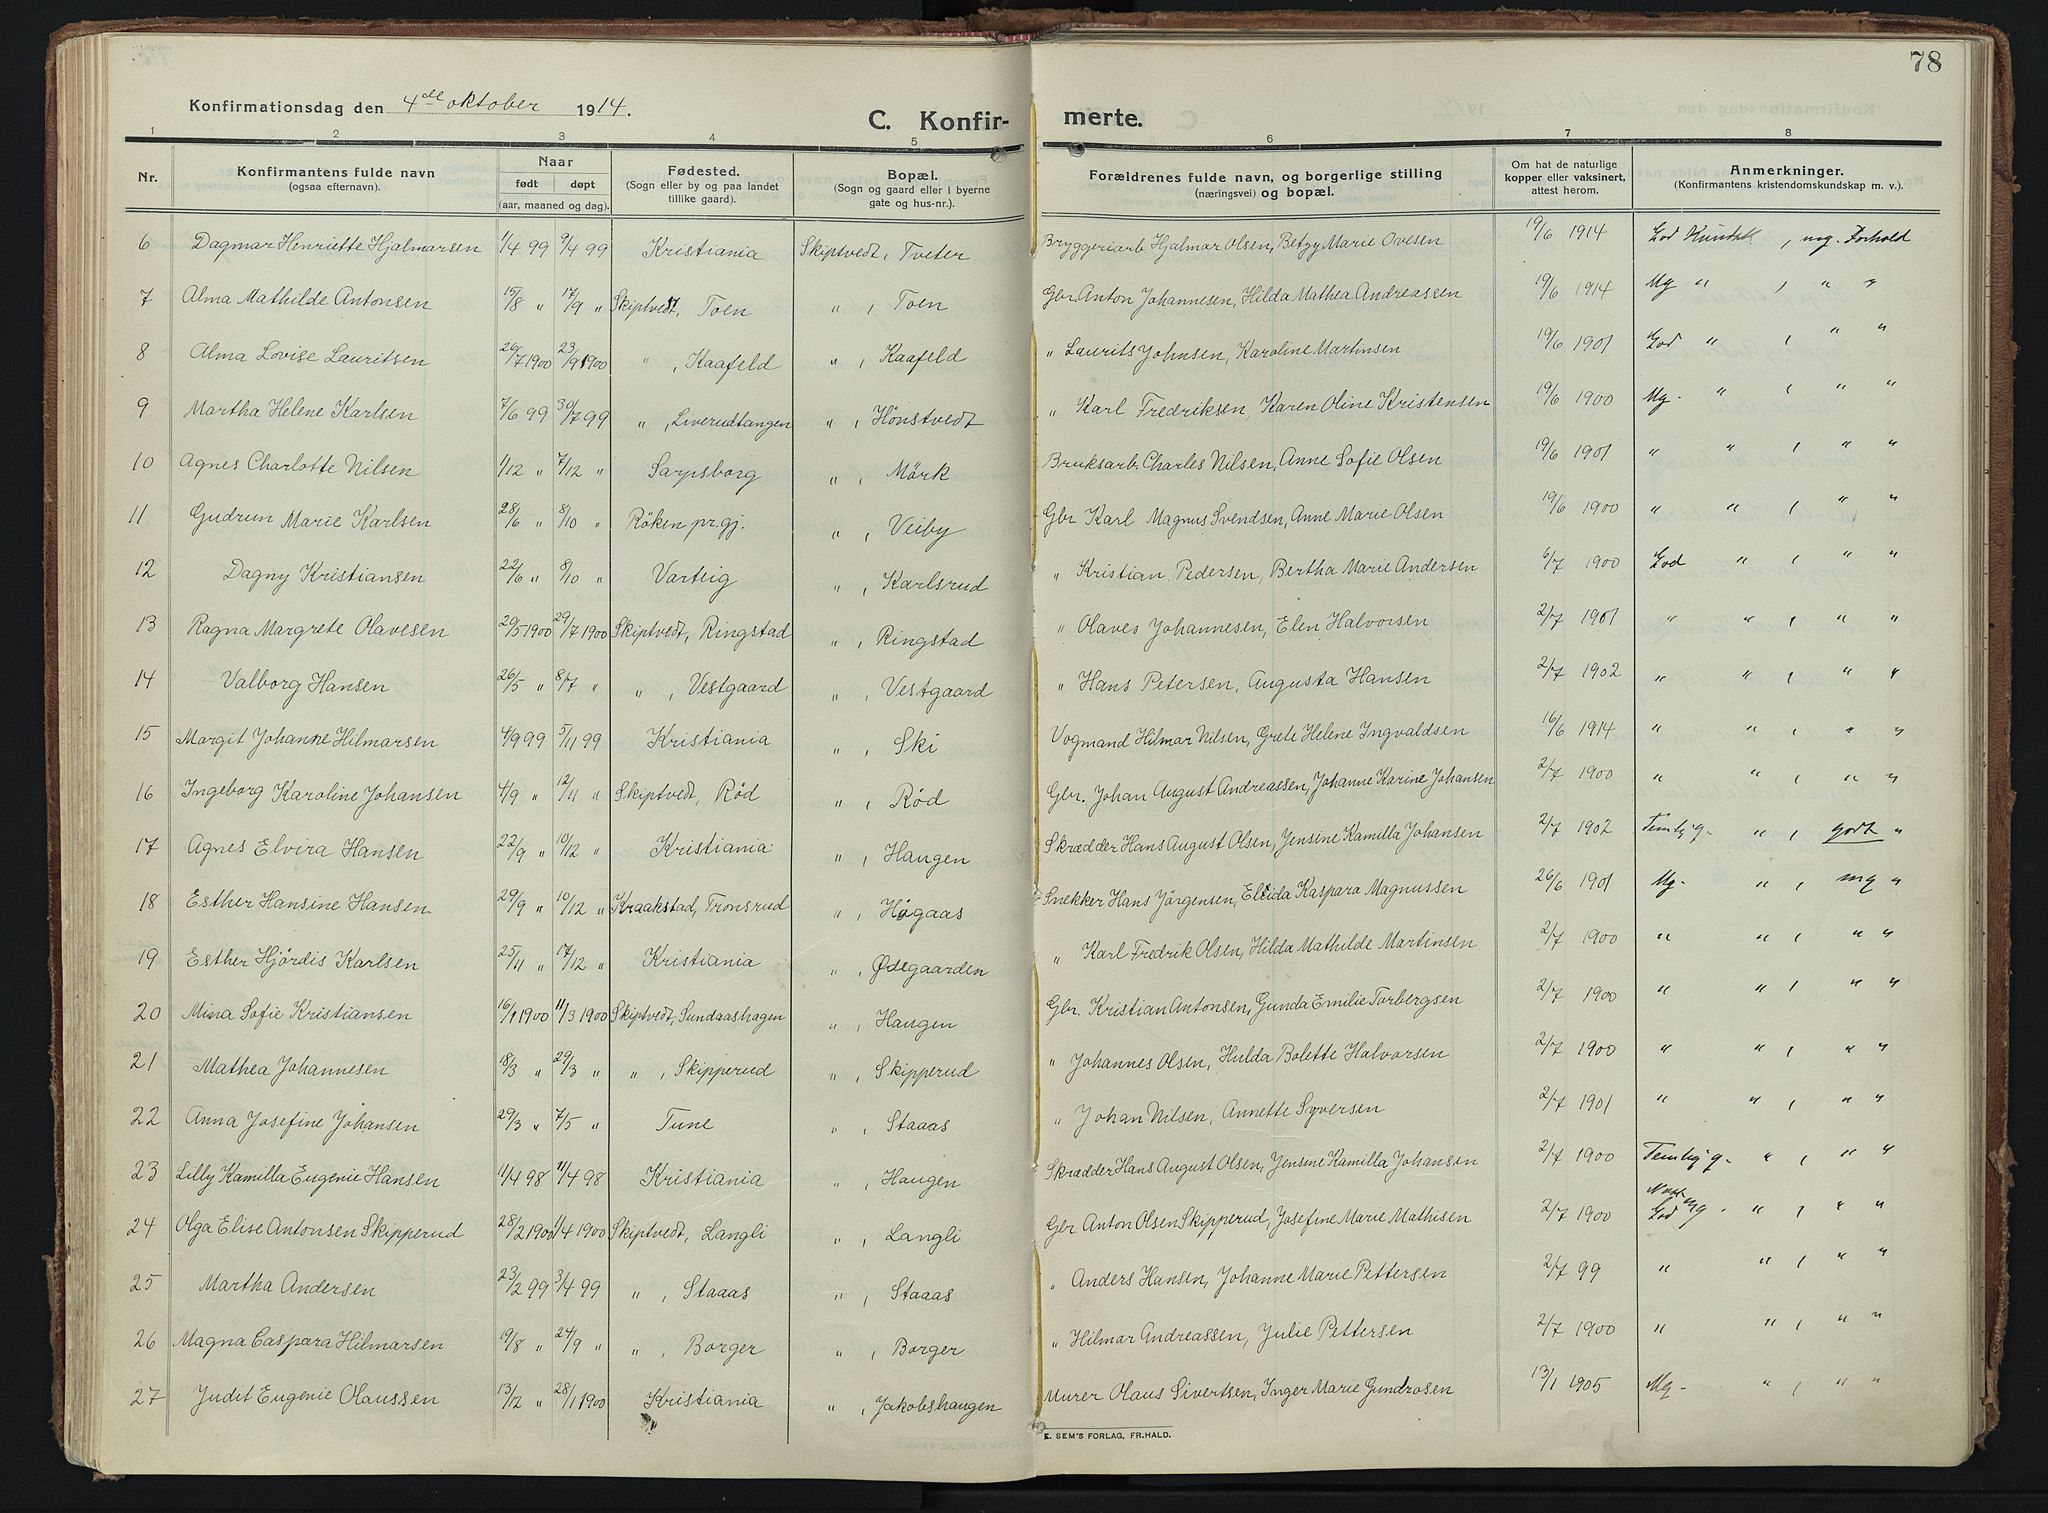 78
Konfirmationsdag den 4de oktober 1914.
C. Konfirmerte.
1 2 3 4 5 6 7 8
Nr. Konfirmantens fulde navn (ogsaa efternavn). Naar født døpt (aar, maaned og dag). Fødested. (Sogn eller by og paa landet tillike gaard). Bopæl. (Sogn og gaard eller i byerne gate og hus-nr.). Forældrenes fulde navn, og borgerlige stilling (næringsvei) og bopæl. Om hat de naturlige kopper eller vaksinert, attest herom. Anmerkninger. (Konfirmantens kristendomskundskap m. v.).
6 Dagmar Henriette Hjalmarsen 1/4 99 9/4 99 Kristiania Skiptvedt, Tveter Bryggeriarb. Hjalmar Olsen, Betzy Marie Ovesen 19/6 1914 God Kundsk, mg. Forhold
7 Alma Mathilde Antonsen 15/8 " 17/9 " Skiptvedt, Toen " , Toen Gbr Anton Johannesen, Hilda Mathea Andreassen 19/6 1914 Mg " , " "
8 Alma Lovise Lauritsen 26/7 1900 23/9 1900 " , Kaafeld " , Kaafeld " Laurits Johnsen, Karoline Martinsen 19/6 1901 God " , " "
9 Martha Helene Karlsen 7/6 99 30/7 99 " , Liverudtangen " , Hönstvedt " Karl Fredriksen, Karen Oline Kristensen 19/6 1900 Mg- " , " "
10 Agnes Charlotte Nilsen 1/12 " 7/12 " Sarpsborg " , Mørk Bruksarb. Charles Nilsen, Anne Sofie Olsen 19/6 1901 " " , " "
11 Gudrun Marie Karlsen 28/6 " 8/10 " Röken pr.gj. " , Veiby Gbr Karl Magnus Svendsen, Anne Marie Olsen 19/6 1900 " " , " "
12 Dagny Kristiansen 22/6 " 8/10 " Varteig " , Karlsrud " Kristian Pedersen, Bertha Marie Andersen 6/7 1900 God " , " "
13 Ragna Margrete Olavesen 20/5 1900 29/7 1900 Skiptvedt, Ringstad " , Ringstad " Olaves Johannesen, Elen Halvorsen 2/7 1901 " " , " "
14 Valborg Hansen 26/5 " 8/7 " " , Vestgaard " , Vestgaard " Hans Petersen, Augusta Hansen 2/7 1902 " " , " "
15 Margit Johanne Hilmarsen 4/9 99 5/11 99 Kristiania " , Ski Vogmand Hilmar Nilsen, Grete Helene Ingvaldsen 16/6 1914 " " , " "
16 Ingeborg Karoline Johansen 4/9 " 12/11 " Skiptvedt, Rød " , Rød Gbr. Johan August Andreassen, Johanne Karine Johansen 2/7 1900 " " , " "
17 Agnes Elvira Hansen 22/9 " 10/12 " Kristiania " , Haugen Skrædder Hans August Olsen, Jensine Kamilla Johansen 2/7 1902 Temlig g- " , godt "
18 Esther Hansine Hansen 29/9 " 10/12 " Kraakstad, Tronsrud " , Høgaas Snekker Hans Jørgensen, Elida Kaspara Magnussen 26/6 1901 Mg- " , mg "
19 Esther Hjördis Karlsen 25/11 " 17/12 " Kristiania " , Ødegaarden " Karl Fredrik Olsen, Hilda Mathilde Martinsen 2/7 1900 " " , " "
20 Mina Sofie Kristiansen 16/1 1900 11/3 1900 Skiptvedt, Sundaashagen " , Haugen Gbr. Kristian Antonsen, Gunda Emilie Torbergsen 2/7 1900 " " , " "
21 Mathea Johannesen 18/3 " 29/3 " " , Skipperud " , Skipperud " Johannes Olsen, Hulda Bolette Halvorsen 2/7 1900 " " , " "
22 Anna Josefine Johansen 29/3 " 7/5 " Tune " , Staaas " Johan Nilsen, Annette Syversen 2/7 1901 " " , " "
23 Lilly Kamilla Eugenie Hansen 1/4 98 11/4 98 Kristiania " , Haugen Skrædder Hans August Olsen, Jensine Kamilla Johansen 2/7 1900 Temlig g- " , " "
24 Olga Elise Antonsen Skipperud 28/2 1900 1/4 1900 Skiptvedt, Langli " , Langli Gbr Anton Olsen Skipperud, Josefine Marie Mathisen 2/7 1900 God mg- " , " "
25 Martha Andersen 23/2 99 3/4 99 " , Staaas " , Staaas " Anders Hansen, Johanne Marie Pettersen 2/7 99 " " , " "
26 Magna Caspara Hilmarsen 19/8 " 24/9 " " , Borger " , Borger " Hilmar Andreassen, Julie Pettersen 2/7 1900 " " , " "
27 Judit Eugenie Olaussen 13/12 " 28/1 1900 Kristiania " , Jakobshaugen Murer Olaus Sivertsen, Inger Marie Gundrosen 13/1 1905 Mg- " , " "
E. SEM'S FORLAG, FR.HALD.